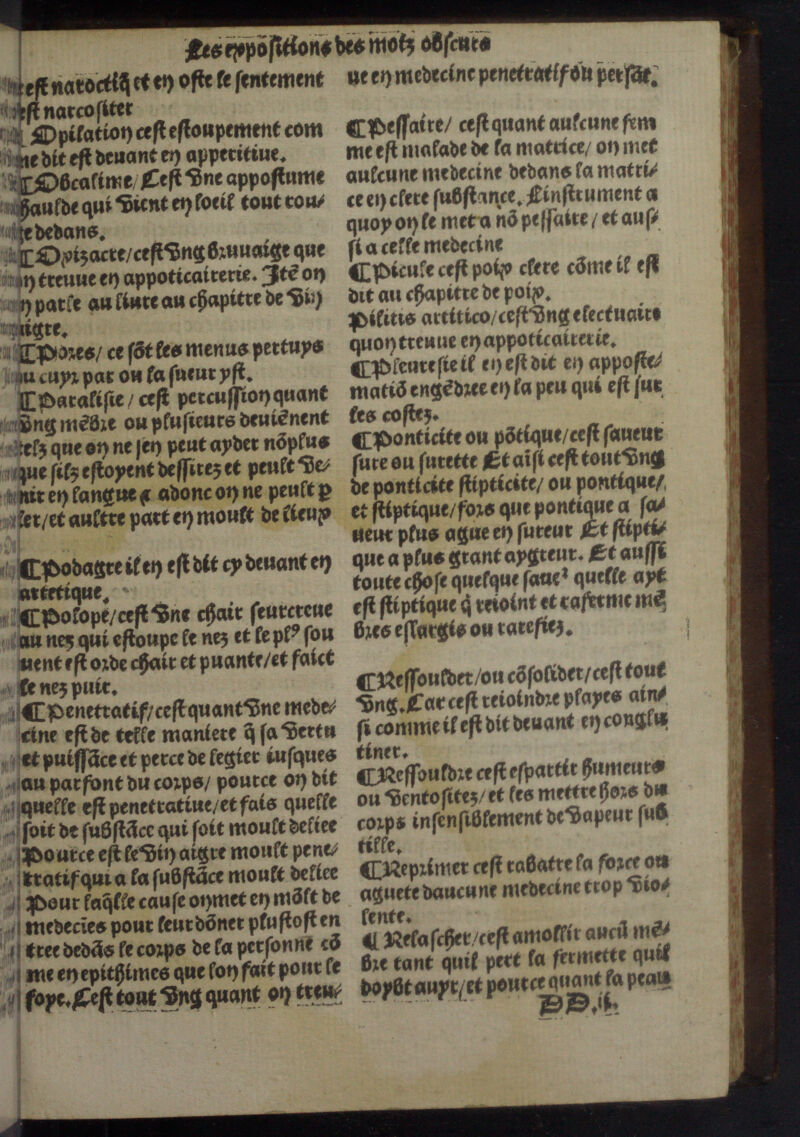 Les expositions des motz obscurs
est narcotiq̃ et en oste le sentement
est narcositer
Opilation cest estoupement com
me dit est devant en apperitive.
¶Obcalime/ Cest vne appostume
chaulde qui vient en loeil tout rou⸗
ge dedans.
¶Opizacre/cest vng bruuaige que
on treuue en appoticairerie. Itē on
en parle au liure au chapitre de vin
aigre.
¶Pores/ ce sõt les menus pertuys
du cuyr par ou la sueur yst.
¶Paralisie / cest percussion quant
vng mẽbre ou plusieurs deuiẽnent
telz que on ne sen peut ayder nõplus
que silz estoyent dessirez et peult ve⸗
nir en langue ⁊ adonc on ne peult p
ler/et aultre part en moult de lieux
¶Podagre il en est dit cy deuant en
artetique.
¶Polope/cest vne chair seurcreue
au nez qui estoupe le nez et le plꝰ sou
uent est orde chair et puante/et faict
le nez puir.
¶Penetratif/cest quant vne mede⸗
cine est de telle maniere q̃ sa vertu
et puissãce et perce de legier iusques
au parfont du corps/ pource on dit
quelle est penetratiue/et fais quelle
soit de substãce qui soit moult deliee
Pource est le vin aigre moult pene⸗
tratif qui a la substãce moult deliee
Pour laq̃lle cause on met en mõlt de
medecĩes pour leur dõner plustost en
tree dedãs le corps de la personne cõ
me en epithimes que lon fait pour le
foye. Cest tout vng quant on treu⸗
ue en medecine penetratif ou persãt.
¶Pessaire/ cest quant aulcune fem
me est malade de la matrice/ on met
aulcune medecine dedans la matri⸗
ce en clere substance. Linstrument a
quoy on le met a nõ pessaire / et aus⸗
si a celle medecine
¶Picule cest poix clere cõme il est
dit au chapitre de poix.
Pilitis artitico/cest vng electuaire
quon treuue en appoticairerie.
¶Pleuresie il en est dit en apposte⸗
matiõ engẽdree en la peu qui est sur
les costez.
¶Ponticite ou põtique/cest saueur
sure ou surette Et aĩsi cest tout vng
de ponticite stipticite/ ou pontique/
et stiptique/fors que pontique a sa⸗
ueur plus ague en sureur Et stipti⸗
que a plus grant aygreur. Et aussi
toute chose quelque saueᵣ quelle ayt
est stiptique q̃ reioint et rafferme mẽ
bres eslargis ou rarefiez.
¶Ressoulder/ou cõsolider/cest tout
vng. Car cest reioindre playes ain⸗
si comme il est dit deuant en conglu
tiner.
¶Ressouldre cest espartir humeurs
ou ventositez/et les mettre hors du
corps insensiblement de vapeur sub
tille.
¶Reprimer cest rabatre la force ou
aguete daucune medecine trop vio⸗
lente.
¶Relascher/cest amollir aucũ mẽ⸗
bre tant quil pert la fermette quil
doybt auyr/et pource quant la peau
DD.ii.